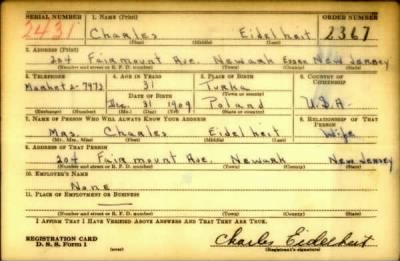 SERIAL NUMBER 1. NAME (Print) ORDER NUMBER
2431 Charles Eidelheit 2367
(First) (Middle) (Last)
2. ADDRESS (Print)
204 Fairmount Ave. Newark Essex New Jersey
(Number and street or R. F. D. number) (Town) (County) (State)
3. TELEPHONE 4. AGE IN YEARS 5. PLACE OF BIRTH 6. COUNTRY OF CITIZENSHIP
Market 2-7973 31 Turka
(Town or county)
DATE OF BIRTH
Dec. 31 1909 Poland U.S.A.
(Exchange) (Number) (Mo.) (Day) (Yr.) (State or country)
7. NAME OF PERSON WHO WILL ALWAYS KNOW YOUR ADDRESS 8. RELATIONSHIP OF THAT PERSON
Mrs. Charles Eidelheit Wife
(Mr., Mrs., Miss) (First) (Middle) (Last)
9. ADDRESS OF THAT PERSON
204 Fairmount Ave. Newark New Jersey
(Number and street or R. F. D. number) (Town) (County) (State)
10. EMPLOYER'S NAME
None
11. PLACE OF EMPLOYMENT OR BUSINESS
(Number and street or R. F. D. number) (Town) (County) (State)
I AFFIRM THAT I HAVE VERIFIED ABOVE ANSWERS AND THAT THEY ARE TRUE.
REGISTRATION CARD
D. S. S. Form 1 (over) Charles Eidelheit
(Registrant's signature)